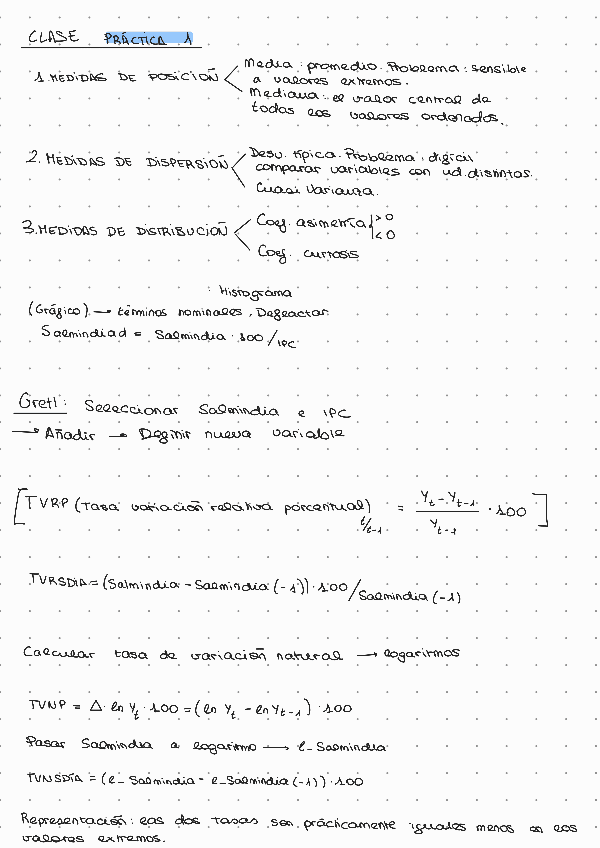 CLASE PRÁCTICA 1
1. MEDIDAS DE POSICIÓN
Media: promedio. Problema: sensible
a valores extremos.
Mediana: el valor central de
todas los valores ordenados.
2. MEDIDAS DE DISPERSIÓN
Desv. típica. Problema, difícil
comparar variables con ud. distintas.
Cuasi Varianza.
3. MEDIDAS DE DISTRIBUCIÓN
Coef. asimetría >0
<0
Coef. curtosis
: Histograma
(Gráfico) → términos nominales, Deflactar
Salmindiad = Salmindia · 100 / IPC
Gretl: Seleccionar Salmindia e IPC
→ Añadir → Definir nueva variable
[TVRP (Tasa variación relativa porcentual) t/t-1 = (Yt - Yt-1) / Yt-1 · 100]
TVRSDIA = (Salmindia - Salmindia (-1)) · 100 / Salmindia (-1)
Calcular tasa de variación natural → logaritmos
TVNP = Δ ln Yt · 100 = (ln Yt - ln Yt-1) · 100
Pasar Salmindia a logaritmo → l_Salmindia
TVNSDIA = (l_Salmindia - l_Salmindia (-1)) · 100
Representación: las dos tasas son prácticamente iguales menos en los
valores extremos.